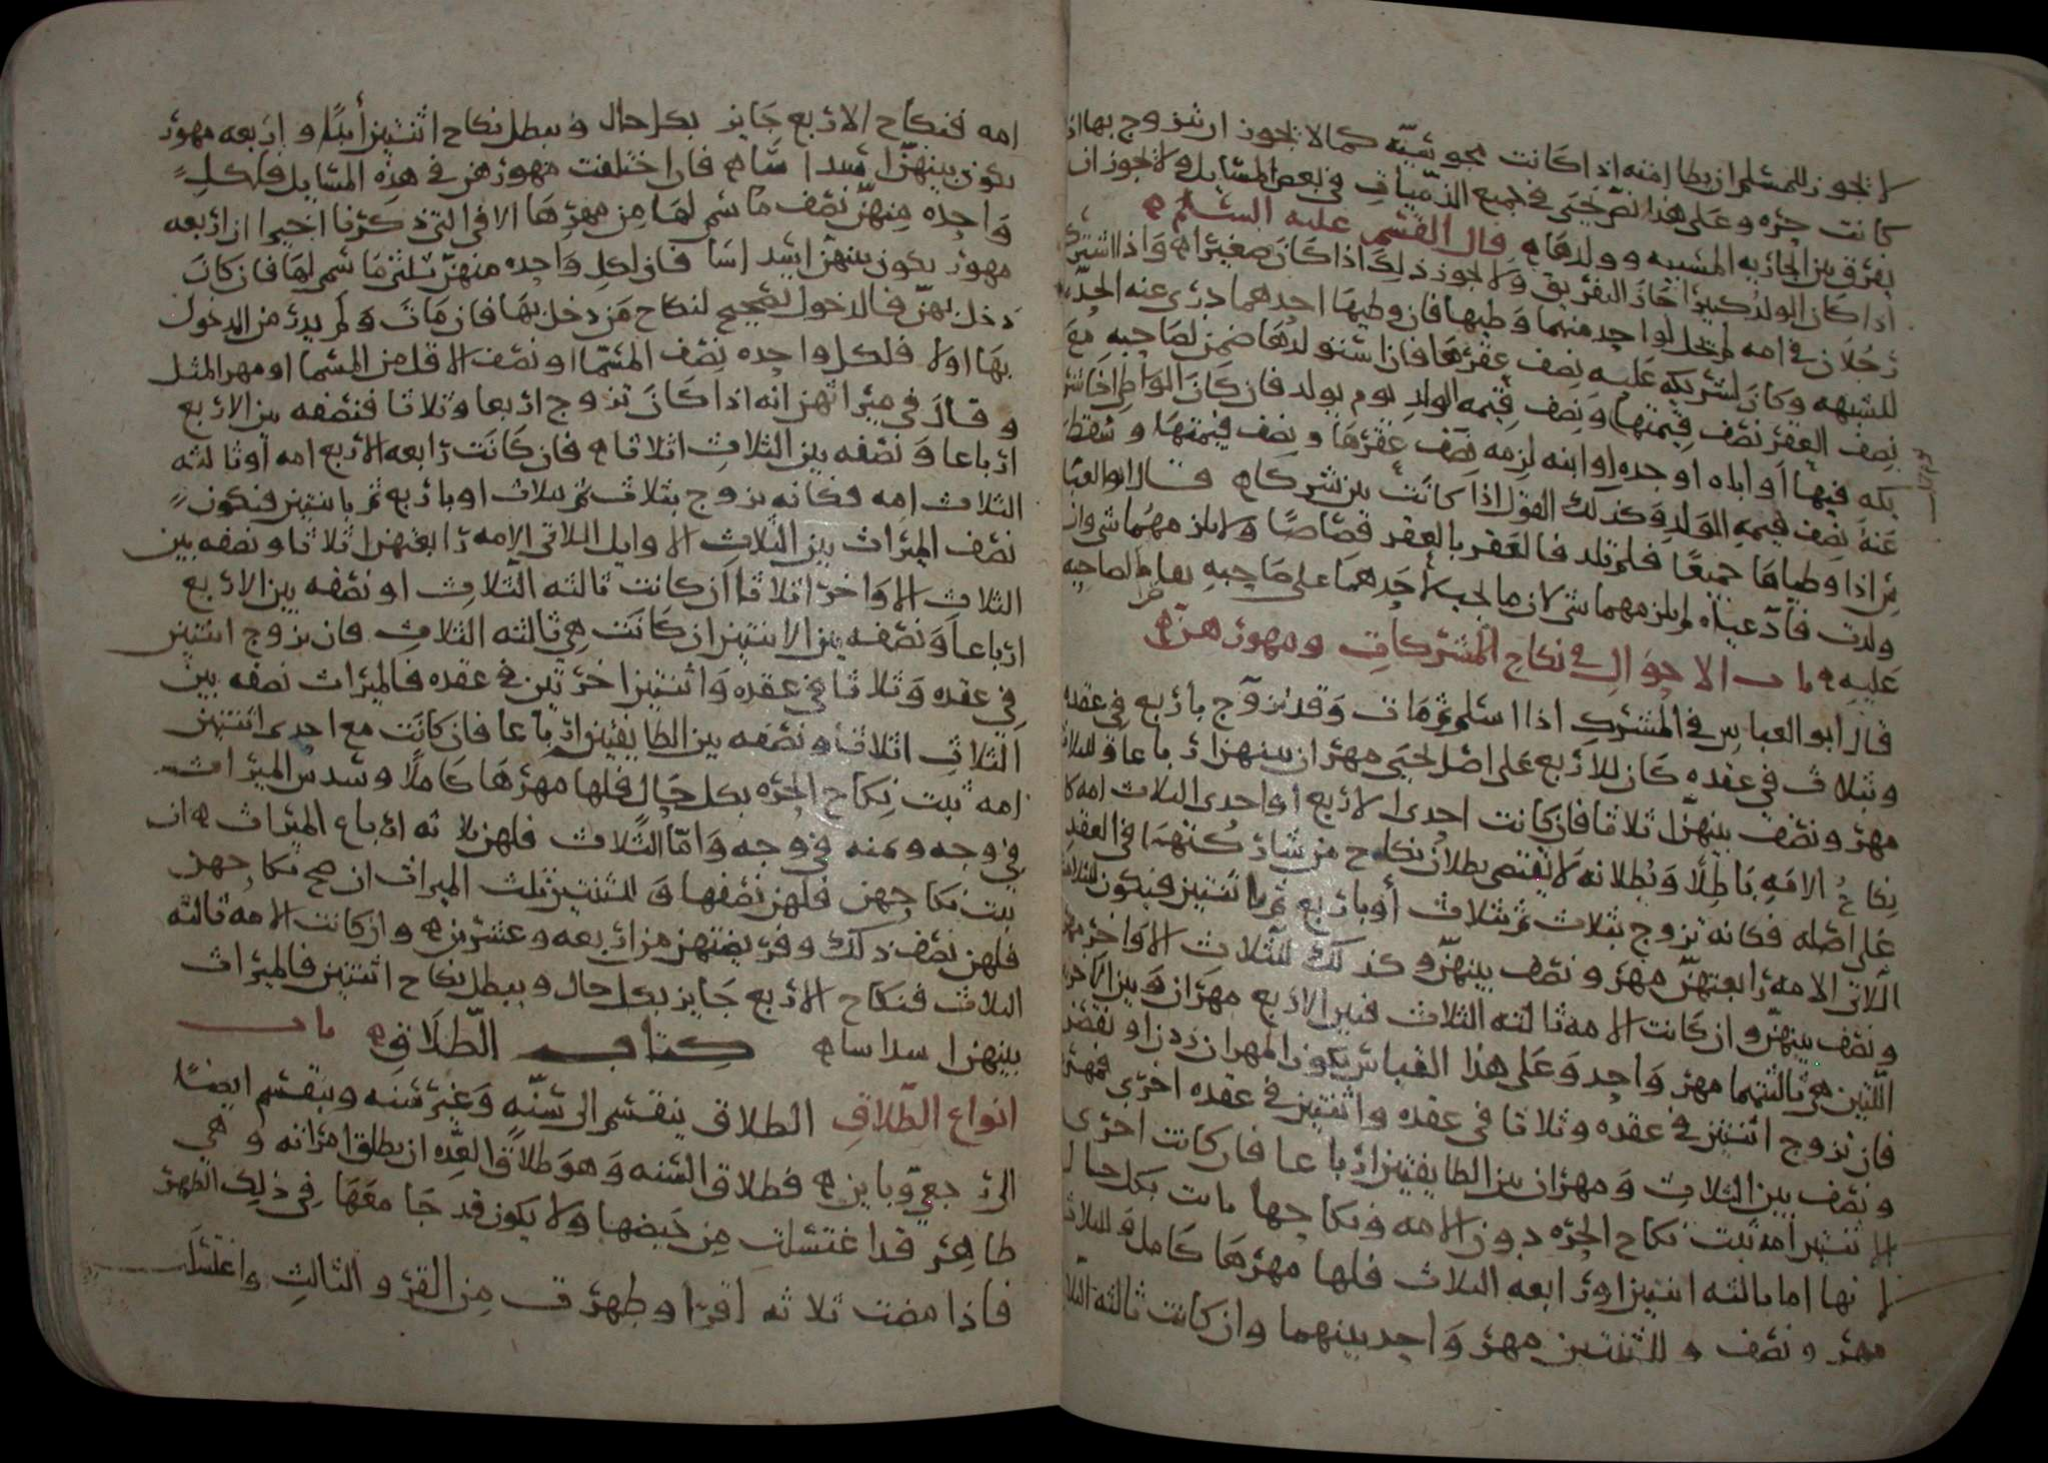 لا يجوز للمسلم ان يطا امته اذا كانت مجوسيّه كما لا يجوز ان يتزوج بها اذا
كانت حره وعلى هذا نص يحيى في جميع الذميات في بعض المسايل ولا يجوز ان
يفرق بين الجاريه المسبيه وولدها ه قال القسم عليه السلم ه
اذا كان الولد كبيرا جاز التفريق ولا يجوز ذلك اذا كان صغيرا ه واذا اشترك
رجلان في امه لم يحل لواحد منهما وطيها فان وطيها احدهما دري عنه الحد
للشبهه وكان لشريكه عليه نصف عقرها فان استولدها ضمن لصاحبه مع
نصف العقر نصف قيمتها ونصف قيمه الولد يوم يولد فان كان الواطى اخا شر
يكه فيها او اباه او جده او ابنه لزمه نصف عقرها ونصف قيمتها وسقط
عنه نصف قيمه الولد وكذلك القول اذا كانت بين شركا ه قال ابو العبا
س اذا وطياها جميعا فلم تلد فالعقر بالعقر قصاصا ولا يلزمهما شي وان
ولدت فادعياه لم يلزمهما شي لان ما يجب لاحدهما على صاحبه بعاوض لصاحبه
عليه ه باب الاحوال في نكاح المشركات ومهورهن ه
قال ابو العباس في المشرك اذا اسلم ثم مات وقد تزوج باربع في عقده
وثلاث في عقده كان للاربع على اصل يحيى مهران بينهن ارباعا وللثلاث
مهر ونصف بينهن ثلاثا فان كانت احدى الاربع او احدى الثلاث امه كا
نكاح الامه باطلا وبطلانه لا يقتضي بطلان نكاح من شاركتهما في العقد
على اصله فكانه تزوج بثلاث ثم ثلاث أو باربع ثم باثنتين فيكون للثلاث
اللاتي الامه رابعتهن مهر ونصف بينهن وكذلك للثلاث الاواخر مهر
ونصف بينهن وان كانت الامه ثالثه الثلاث فبين الاربع مهران وبين الاخر
اللتين هي ثالثتهما مهر واحد وعلى هذا القياس يكون المهران زدن او نقصن
فان تزوج اثنتين في عقده وثلاثا في عقده واثنتين في عقده اخرى فمهر
ونصف بين الثلاث ومهران بين الطايفتين ارباعا فان كانت احدى
الاثنتين امه ثبت نكاح الحره دون الامه ونكاحها ثابت بكل حال
لانها اما ثالثه اثنتين او رابعه الثلاث فلها مهرها كامل وللثلاث
مهر ونصف وللثنتين مهر واحد بينهما وان كانت ثالثه الثلاث
امه فنكاح الاربع جايز بكل حال ويبطل نكاح اثنتين أبدا واربعه مهور
يكون بينهن اسداسا ه فان اختلفت مهورهن في هذه المسايل فلكل
واحده منهن نصف ما سمي لها من مهرها الا في التي ذكرنا اخيرا ان اربعه
مهور يكون بينهن اسداسا فان لكل واحده منهن ثلثي ما سمي لها فان كان
دخل بهن فالدخول تصحيح لنكاح من دخل بها فان مات ولم يدر من المدخول
بها اولا فلكل واحده نصف المسمّا او نصف الاقل من المسما او مهر المثل
وقال في ميراثهن انه اذا كان تزوج اربعا وثلاثا فنصفه بين الاربع
ارباعا ونصفه بين الثلاث اثلاثا ه فان كانت رابعه الاربع امه او ثالثه
الثلاث امه فكانه تزوج بثلاث ثم بثلاث او باربع ثم باثنتين فيكون
نصف الميراث بين الثلاث الاوايل اللاتي الامه رابعتهن اثلاثا ونصفه بين
الثلاث الاواخر اثلاثا ان كانت ثالثه الثلاث او نصفه بين الاربع
ارباعا ونصفه بين الاثنتين ان كانت هي ثالثه الثلاث فان تزوج اثنتين
في عقده وثلاثا في عقده واثنتين اخرتين في عقده فالميراث نصفه بين
الثلاث اثلاثا ونصفه بين الطايفتين ارباعا فان كانت مع احدى اثنتين
امه ثبت نكاح الحره بكل حال فلها مهرها كاملا وسدس الميراث
في وجه وثمنه في وجه واما الثلاث فلهن ثلاثه ارباع الميراث ه ان
ثبت نكاحهن فلهن نصفها وللثنتين ثلث الميراث ان صح نكاحهن
فلهن نصف ذلك وفريضتهن من اربعه وعشرين ه وان كانت الامه ثالثه
الثلاث فنكاح الاربع جايز بكل حال ويبطل نكاح اثنتين فالميراث
بينهن اسداسا ه كتاب الطلاق ه باب
انواع الطلاق الطلاق ينقسم الى سنه وغير سنه وينقسم ايضا
الى رجعي وباين ه فطلاق السنه وهو طلاق العده ان يطلق امراته وهي
طاهر قد اغتسلت من حيضها ولا يكون قد جامعها في ذلك الطهر
فاذا مضت ثلاثه اقرا وطهرت من القرو الثالث واغتسلت